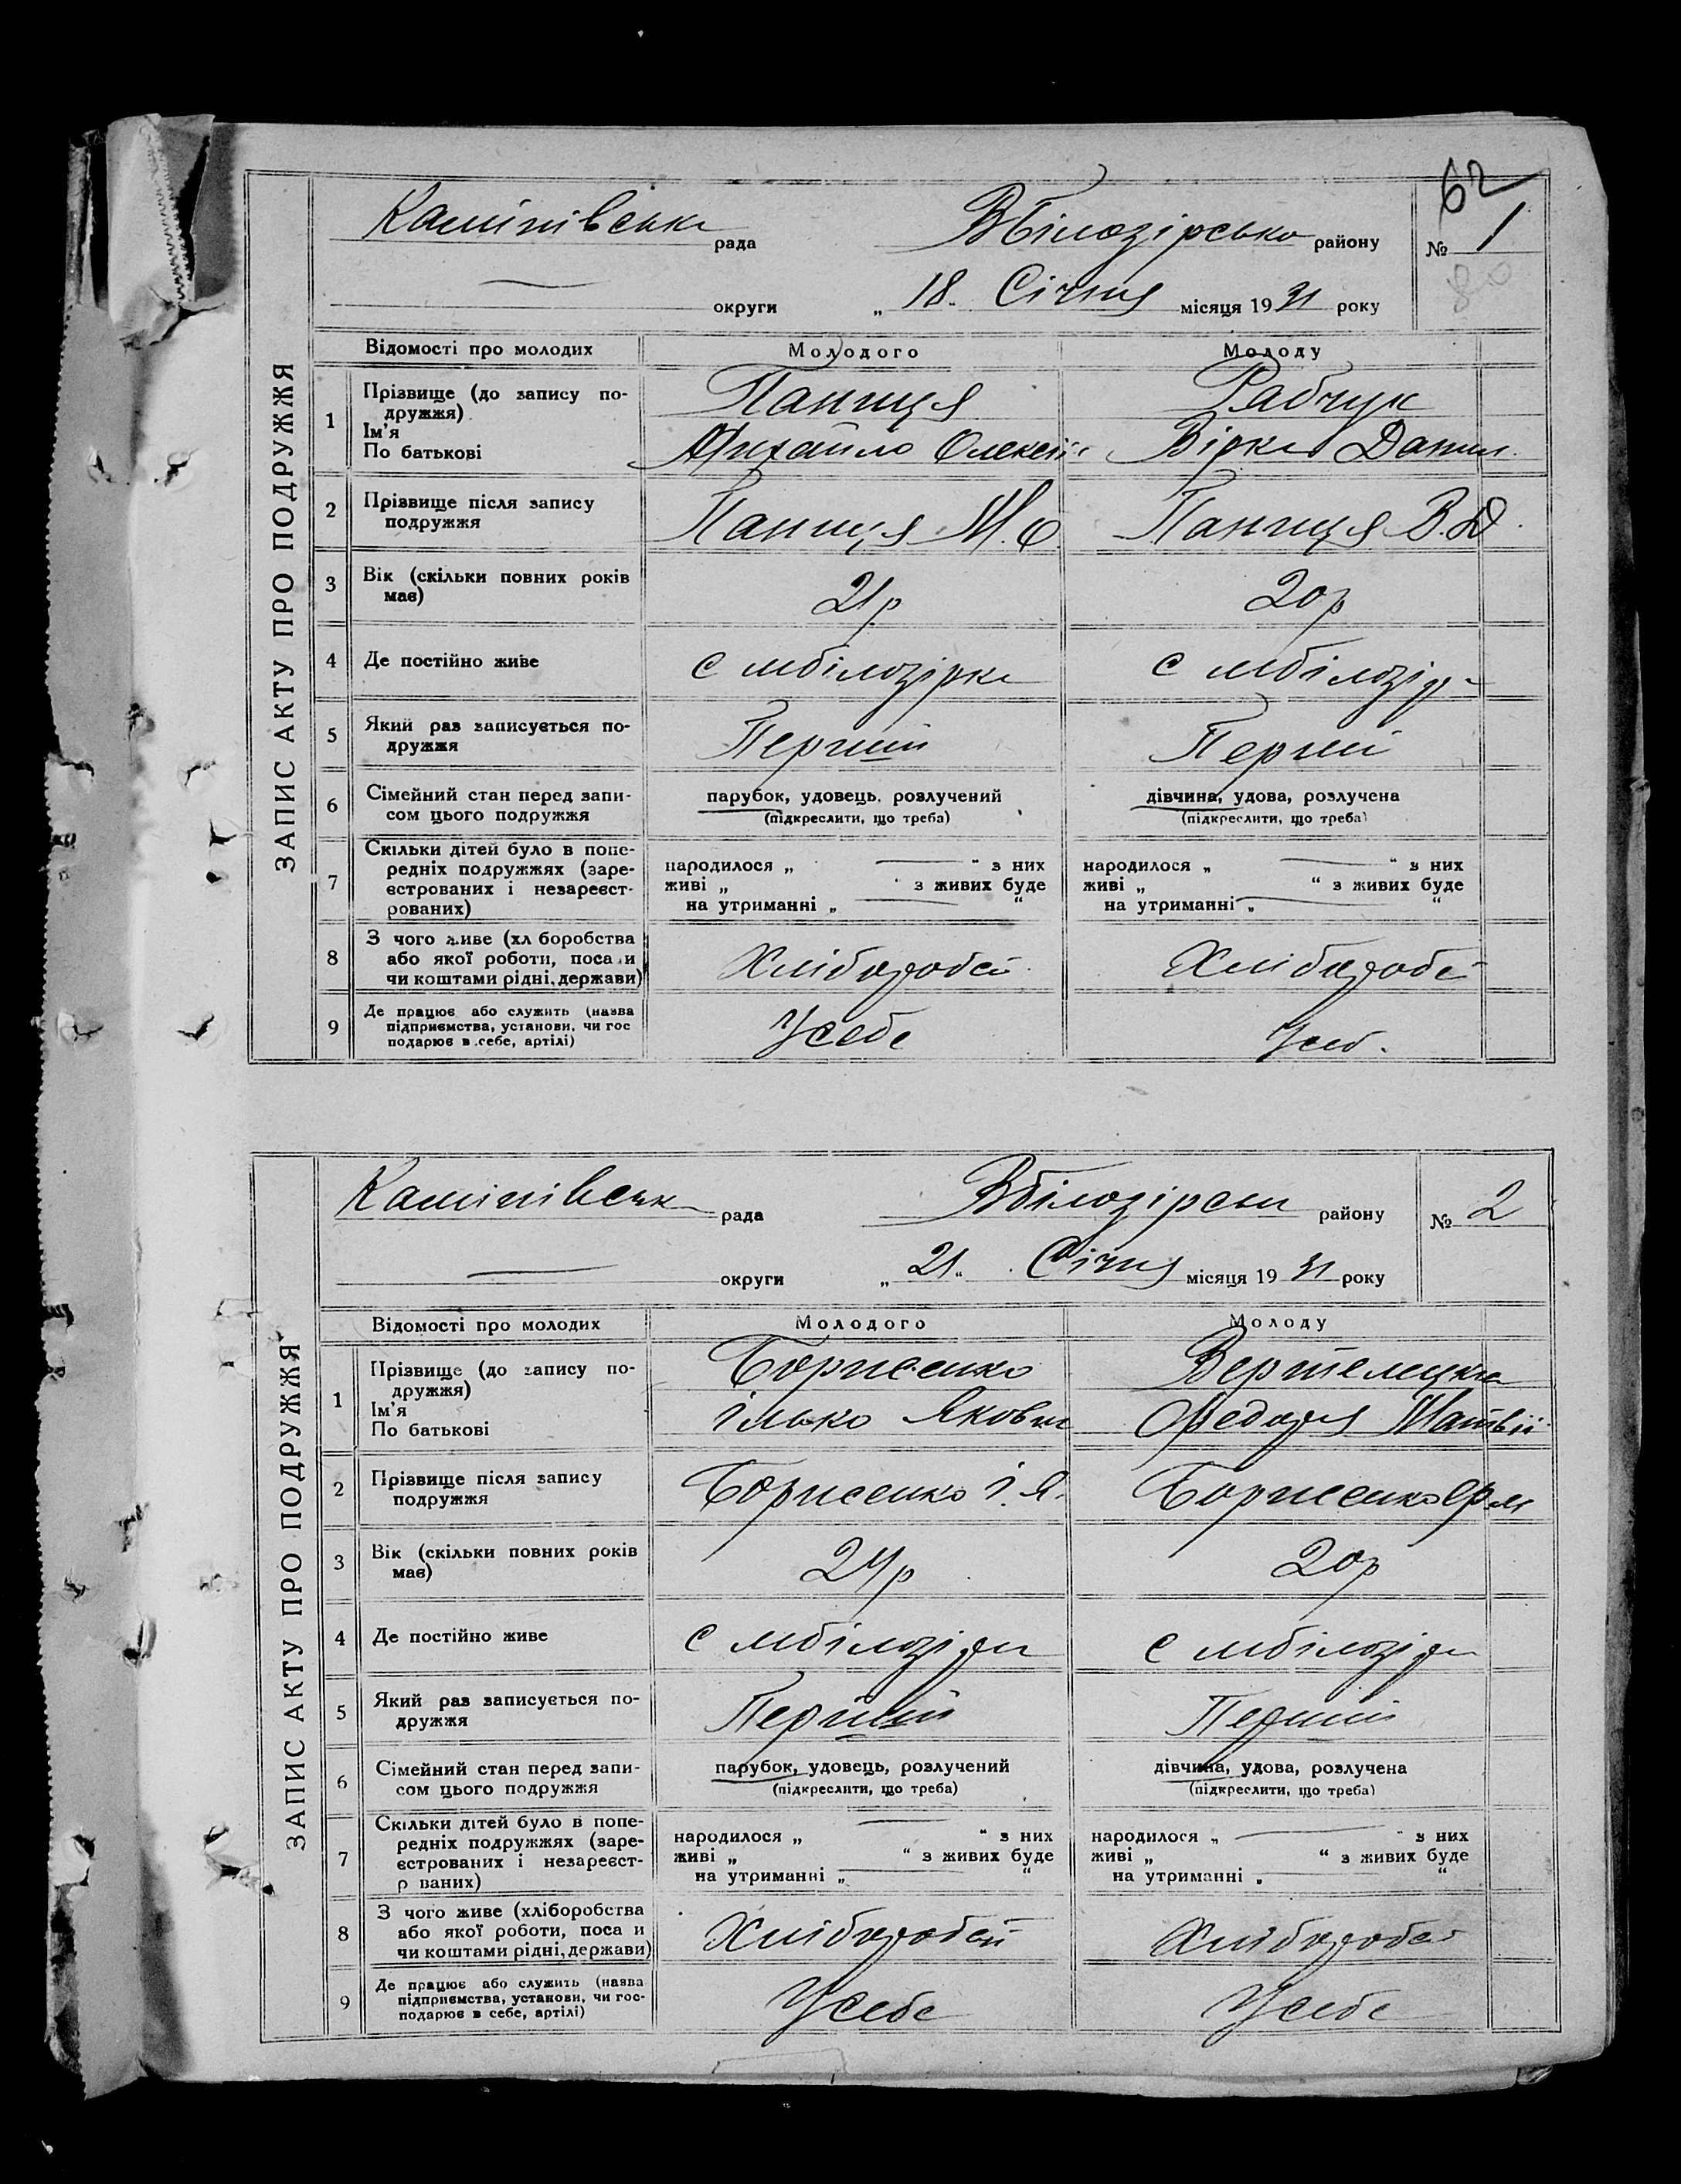 62
рада
Вбілозірсько району
№ 1
80
округи
„ 18 „ Січня місяця 1931 року
ЗАПИС АКТУ ПРО ПОДРУЖЖЯ
Відомості про молодих
Молодого
Молоду
1
Прізвище (до запису по-
дружжя)
Ім'я
По батькові
Панця
Михайло Олексій
Рабчук
Вірка Данил.
2
Прізвище після запису
подружжя
Панця М. О
Панця В. Д.
3
Вік (скільки повних років
має)
21р
20р
4
Де постійно живе
с мбілозірка
с мбілозір
5
Який раз записується по-
дружжя
Перший
Перший
6
Сімейний стан перед запи-
сом цього подружжя
парубок, удовець, розлучений
(підкреслити, що треба)
дівчина, удова, розлучена
(підкреслити, що треба)
7
Скільки дітей було в попе-
редніх подружжях (заре-
єстрованих і незареєст-
рованих)
народилося „ “ з них
живі „ “ з живих буде
на утриманні „ “
народилося „ “ з них
живі „ “ з живих буде
на утриманні „ “
8
З чого живе (хл боробства
або якої роботи, поса и
чи коштами рідні, держави)
Хлібороб
Хлібороб
9
Де працює або служить (назва
підприємства, установи, чи гос
подарює в себе, артілі)
Усебе
Усеб.
рада
Вбілозірськ району
№ 2
округи
„ 21 „ Січня місяця 1931 року
ЗАПИС АКТУ ПРО ПОДРУЖЖЯ
Відомості про молодих
Молодого
Молоду
1
Прізвище (до запису по-
дружжя)
Ім'я
По батькові
Борисенко
Ілько Якович
Вертелецька
Федора Матвії
2
Прізвище після запису
подружжя
Борисенко І. Я.
Борисенко Ф. М
3
Вік (скільки повних років
має)
24р
20р
4
Де постійно живе
с мбілозірка
с мбілозірка
5
Який раз записується по-
дружжя
Перший
Перший
6
Сімейний стан перед запи-
сом цього подружжя
парубок, удовець, розлучений
(підкреслити, що треба)
дівчина, удова, розлучена
(підкреслити, що треба)
7
Скільки дітей було в попе-
редніх подружжях (заре-
єстрованих і незареєст-
р ваних)
народилося „ “ з них
живі „ “ з живих буде
на утриманні „ “
народилося „ “ з них
живі „ “ з живих буде
на утриманні „ “
8
З чого живе (хліборобства
або якої роботи, поса и
чи коштами рідні, держави)
Хлібороб
Хлібороб
9
Де працює або служить (назва
підприємства, установи, чи гос-
подарює в себе, артілі)
Усебе
Усебе